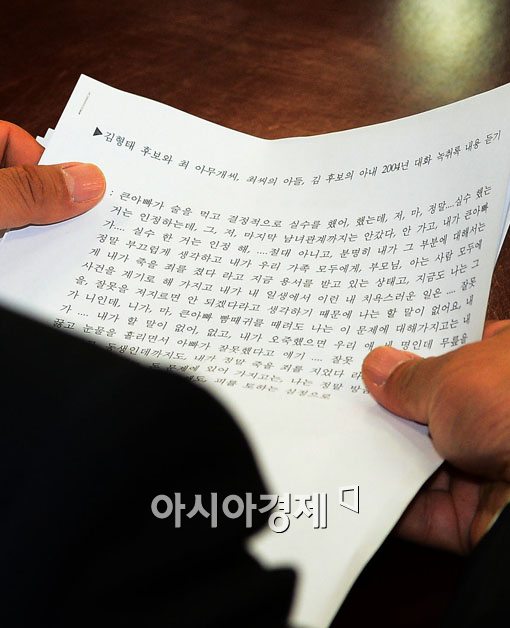 ▶김형태 후보와 최 아무개씨, 최씨의 아들, 김 후보의 아내 2004년 대화 녹취록 내용 듣기
: 큰아빠가 술을 먹고 결정적으로 실수를 했어, 했는데, 저, 마, 정말....실수 했는
거는 인정하는데, 그, 저, 마지막 남녀관계까지는 안갔다, 안 가고, 내가 큰아빠
가.... 실수 한 거는 인정 해, ....절대 아니고, 분명히 내가 그 부분에 대해서는
정말 부끄럽게 생각하고 내가 우리 가족 모두에게, 부모님, 아는 사람 모두에
게 내가 죽을 죄를 졌다 라고 지금 용서를 받고 있는 상태고, 지금도 나는 그
사건을 계기로 해 가지고 내가 내 일생에서 이런 내 치유스러운 일은 ... 잘못
을, 잘못을 저지르면 안 되겠다라고 생각하기 때문에 나는 할 말이 없어요, 내
가 니인데, 니가, 마, 큰아빠 빰때귀를 때려도 나는 이 문제에 대해가지고는 내
가 .... 내가 할 말이 없어, 없고, 내가 오죽했으면 우리 애 세 명인데 무릎을
꿇고 눈물을 흘리면서 아빠가 잘못했다고 얘기 .... 잘못
동생인데까지도, 내가 정말 죽을 죄를 지었다 라
문제에 있어 가지고는, 나는 정말
피를 토하는 심정으로
아시아경제